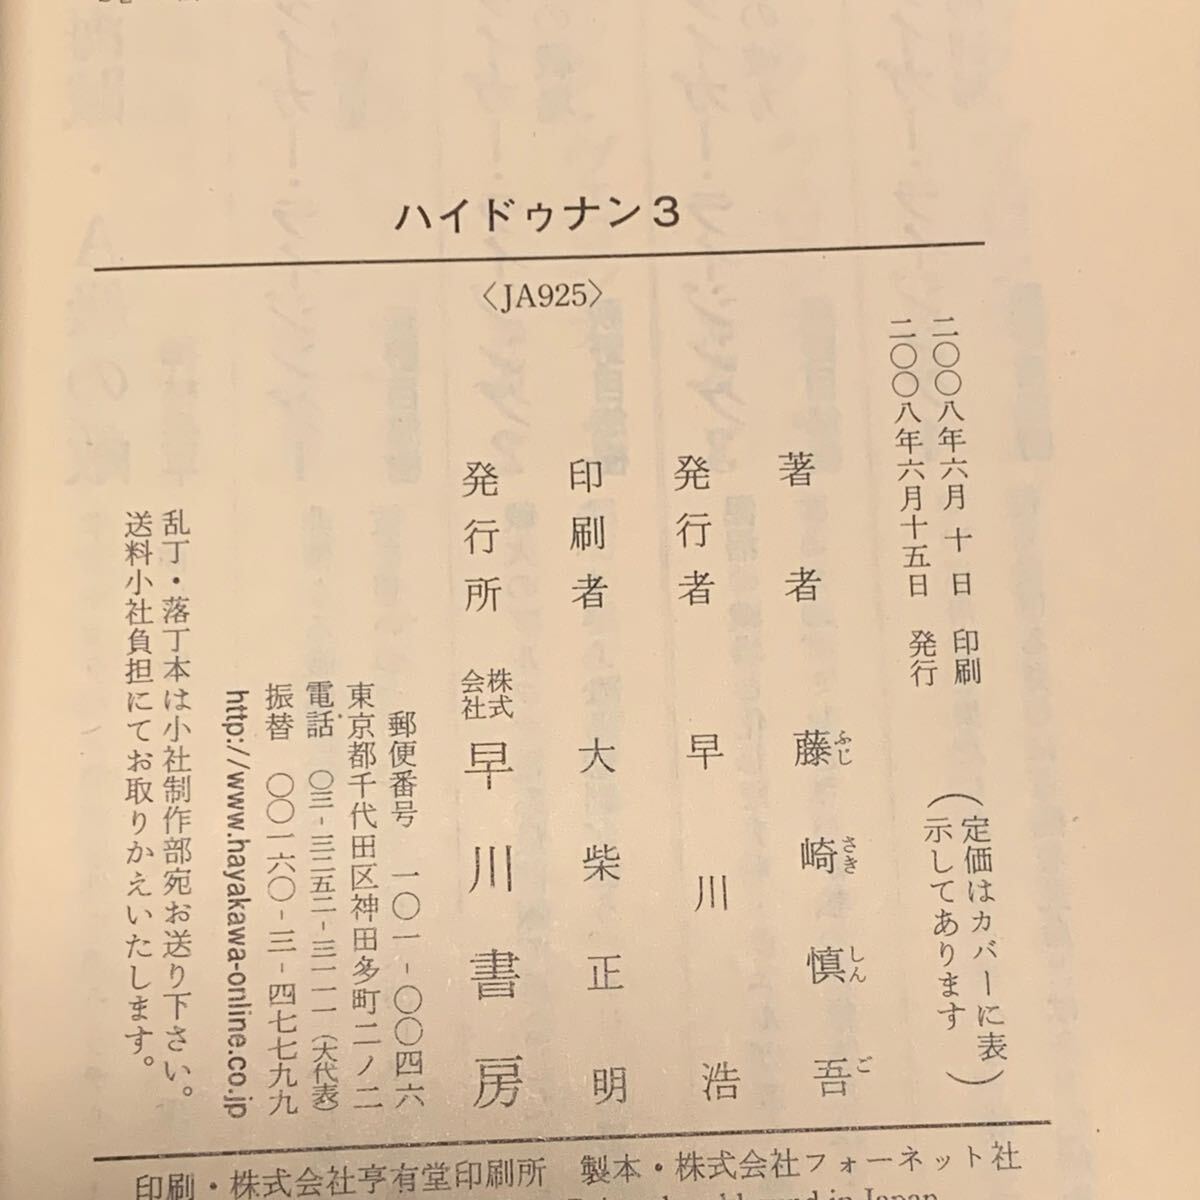 ハイドゥナン3
〈JA925〉
二〇〇八年六月 十 日 印刷
二〇〇八年六月十五日 発行
（定価はカバーに表
示してあります）
著者 藤崎慎吾
ふじ さき しん ご
発行者 早川 浩
印刷者 大柴正明
発行所 株式会社 早川書房
郵便番号 一〇一-〇〇四六
東京都千代田区神田多町二ノ二
電話 〇三-三二五二-三一一一（大代表）
振替 〇〇一六〇-三-四七七九九
http://www.hayakawa-online.co.jp
乱丁・落丁本は小社制作部宛お送り下さい。
送料小社負担にてお取りかえいたします。
印刷・株式会社亨有堂印刷所 製本・株式会社フォーネット社